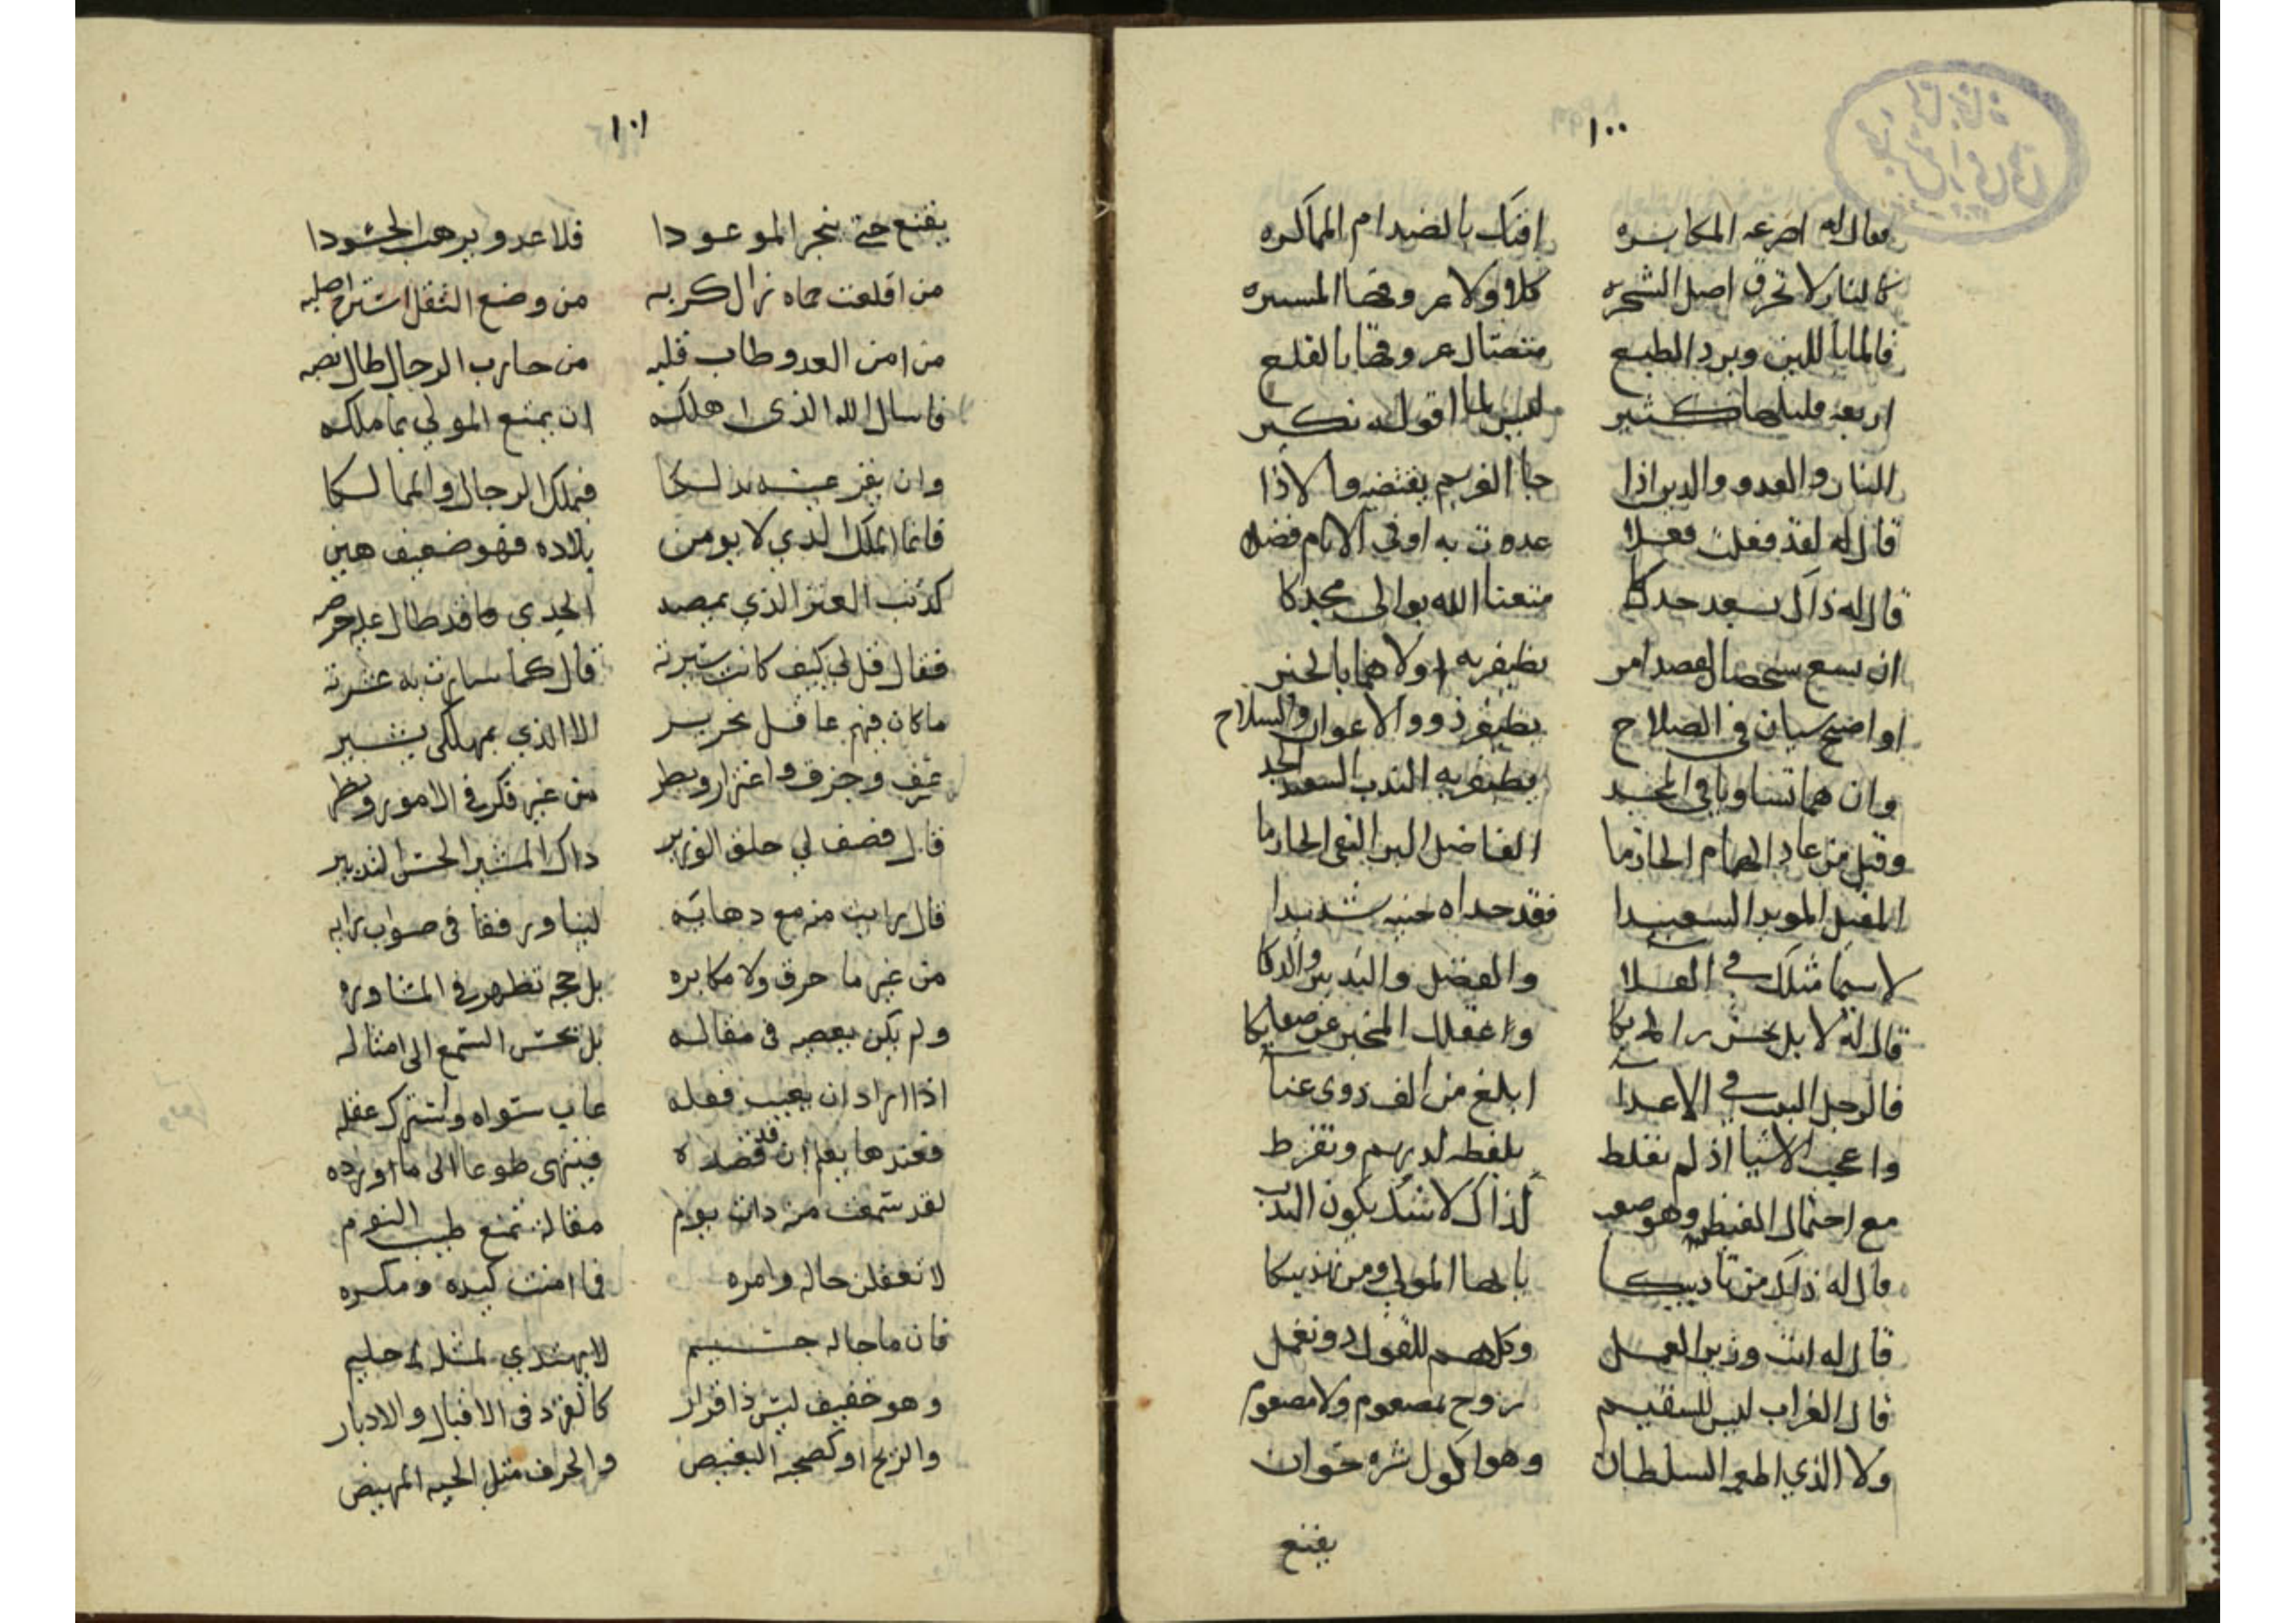 ١٠٠
فقال له اصرعه المكابره افتك بالضد ام المماكره
كالنار لا تحرق اصل الشجره كلا ولا عروقها
فالماء باللين وبرد الطبع عروقها بالقلع
اربعه قليلها كثير ليس لما اقوله نكير
النار والعدو والدين اذا جا الغريم يقتضيه والاذا
قال له لقد فعلت فعلا به اوفى الانام فضلا
قال له ذاك بسعد جدكا متعنا الله بوالى مجدكا
ان يسع شخصان لقصد امر يظفر به اولاهما بالخير
او اضح سيان فى الصلاح يظفر ذو والاعوان والسلاح
وان هما تساويا فى يظفر به الندب السعيد الجد
وقيل من عاد الهمام الحازما الفاضل البر التقى الحازما
المقبل المويد السعيدا فقد حداه حينه شديدا
لا سيما مثلك فى العلا والفضل والتدبير والذكا
قال له لا بل بحسن رايكا وعقلك المخبر عن
فالرجل اللبيب فى الاعدا ابلغ من الف ذوى عنا
واعجب الاشيا اذ لم تغلط بلفظه لديهم وتفرط
مع احتمال الغيظ وهو صعب كذاك لا شك يكون الندب
قال له ذلك من تاديبكا يا ايها المولى ومن تهذيبكا
قال له انت وزير العمل وكلهم للقول دون عمل
قال الغراب ليس للسقيم روح
ولا الذي اطمع السلطان وهو اكول شره خوان
يقنع
١٠١
يقنع حتى ينجز الموعودا فلا عدو يرهب الحشودا
من اقلعت حماه زال كربه من وضع الثقل استراح صلبه
من امن العدو وطاب قلبه من حارب الرجال طال نصبه
فاسال الله الذى اهلكه ان يمتع المولى بما ملكه
وان يقر عينه بذلكا فيملك الرجال والممالكا
فانما الملك الذي لا يومن بلاده فهو ضعيف هين
كذنب العنز الذي يمصه الجدي ما قد طال عليه حرصه
فقال قل لي كيف كانت سيرته قال كما سارت به عشرته
ما كان فيهم عاقل نحرير الا الذي بمهلكى يشير
وخرق واغترار وبطر من غير فكر فى الامور ونظر
قال فصف لي خلق الوزير ذاك المشير الحسن التدبير
قال رايت منه مع دهايه لينا ورفقا فى صواب رايه
من غير ما خرق ولا مكابره بل حجه تظهر فى المشاوره
ولم يكن يعصه فى مقاله بل يحسن السمع الى امثاله
اذا اراد ان يعيب فعله عاب سواه
فعندها يعلم ان قد قصده فينتهى طوعا الى ما اورده
لقد سمعت منه ذات يوم مقالة تمنع طيب النوم
لا تغفلن حاله وامره فما امنت كيده ومكره
فان ما حاله جسيم لا يهتدي لمثله حليم
وهو خفيف ليس ذا قرار كالقرد فى الاقبال والادبار
والريح او كصحبه البغيض مثل الحيه المهيض